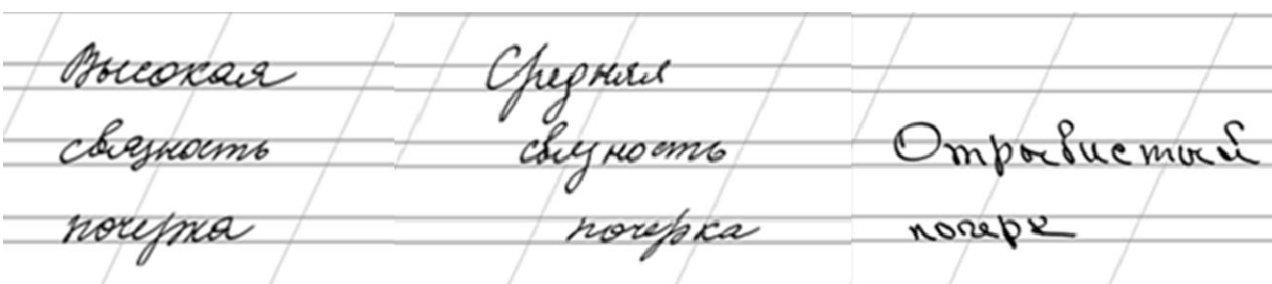 Высокая
связность
почерка
Средняя
связность
почерка
Отрывистый
почерк